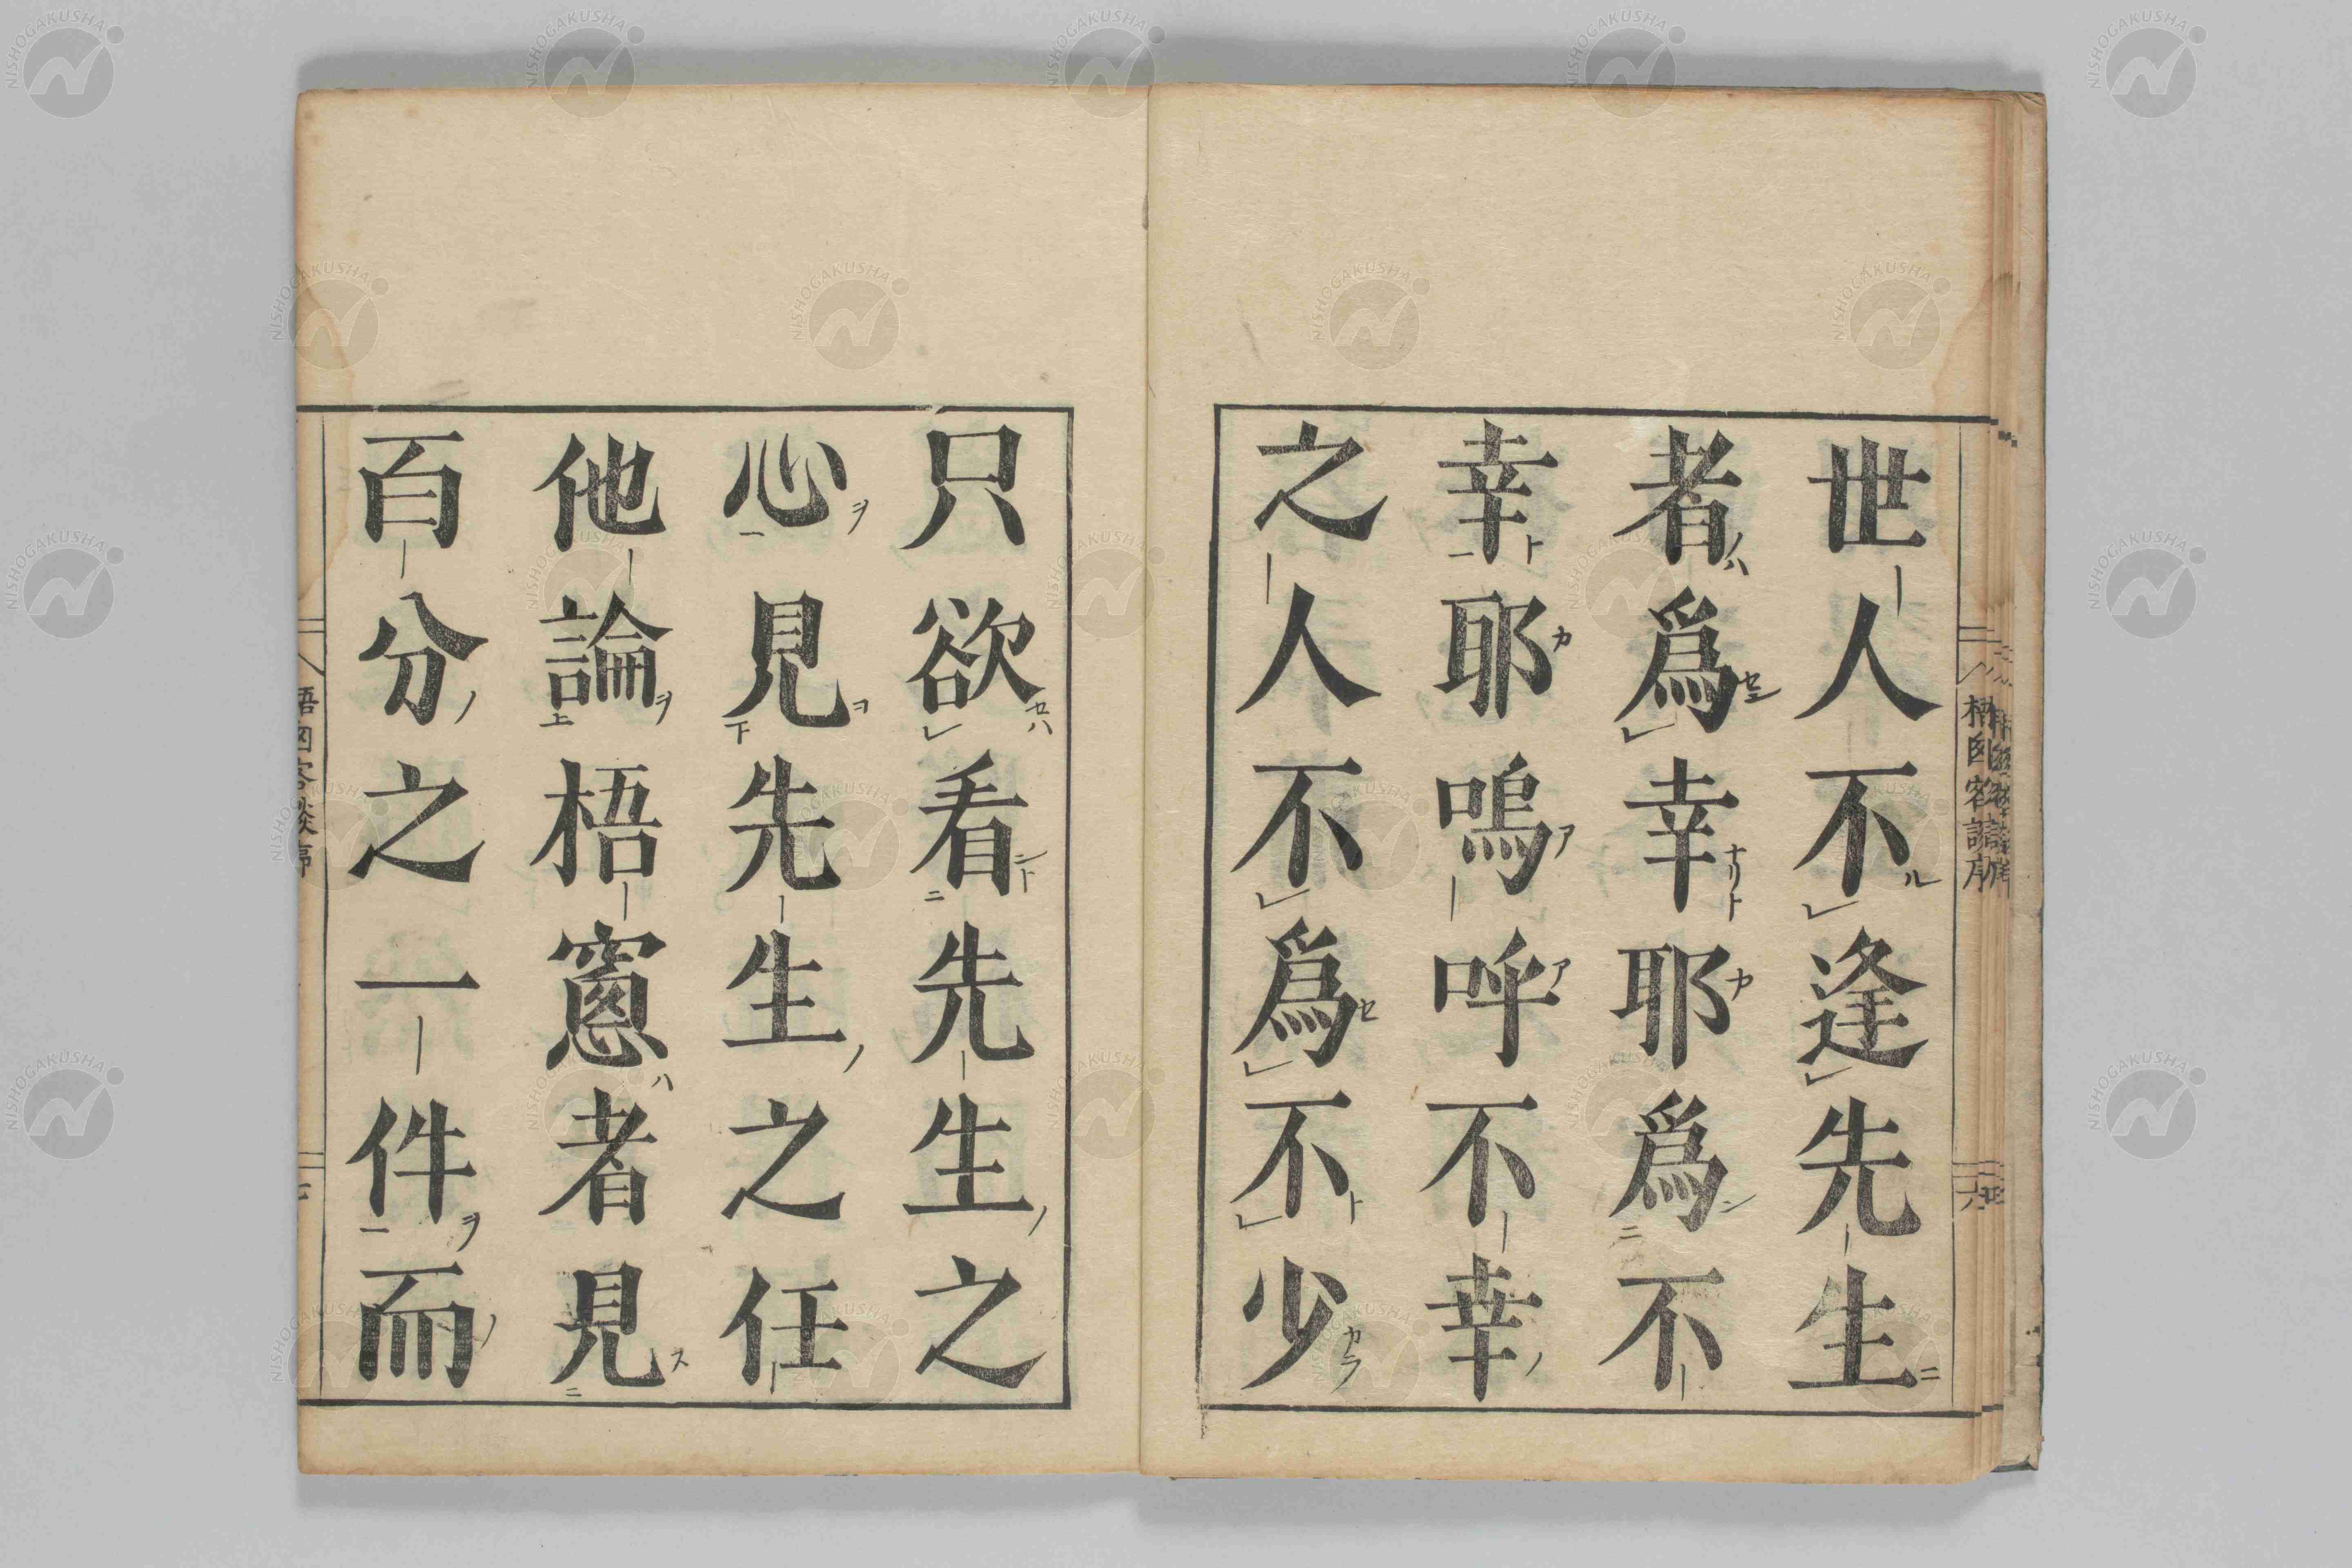 世人不逢先生
者爲幸耶爲不
幸耶嗚呼不幸
之人不爲不少
只欲看先生之
心見先生之任
他論梧窻者見
百分之一件而